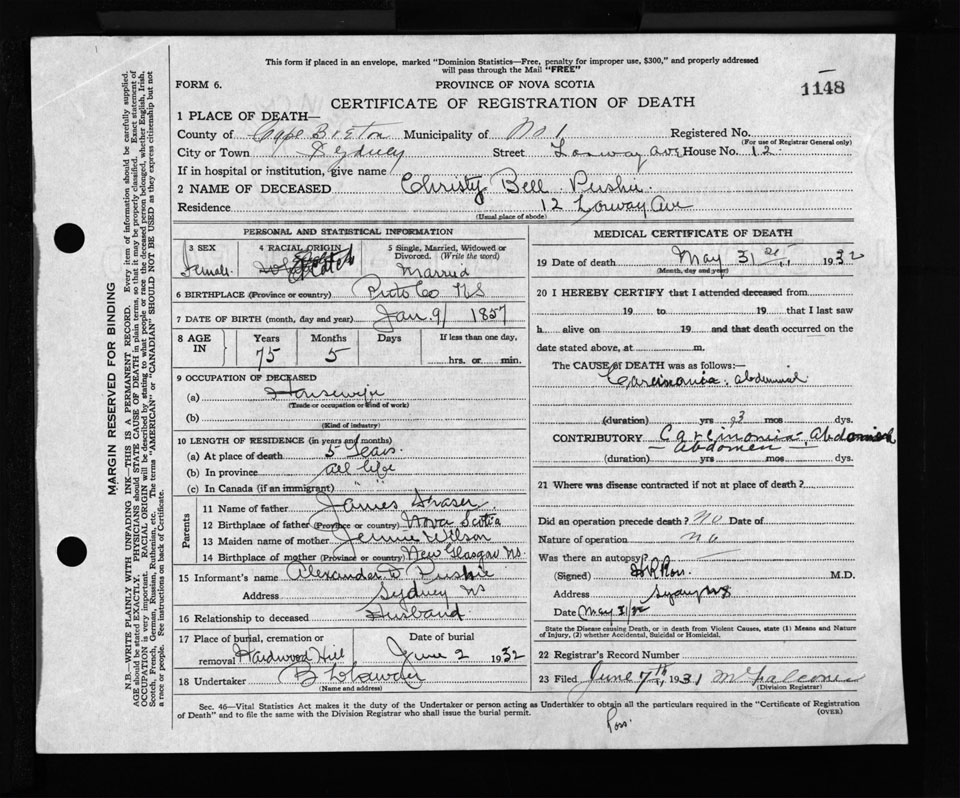 This form if placed in an envelope, marked "Dominion Statistics—Free, penalty for improper use, $300," and properly addressed
will pass through the Mail "FREE"
FORM 6.
PROVINCE OF NOVA SCOTIA
1148
CERTIFICATE OF REGISTRATION OF DEATH
1 PLACE OF DEATH—
County of Cape Breton Municipality of No 1 Registered No.
(For use of Registrar General only)
City or Town Sydney Street Lorway Ave House No. 12
If in hospital or institution, give name
2 NAME OF DECEASED Christy Bell Pushie
Residence 12 Lorway Ave
(Usual place of abode)
PERSONAL AND STATISTICAL INFORMATION
3 SEX 4 RACIAL ORIGIN 5 Single, Married, Widowed or Divorced. (Write the word)
Female Scotch Married
6 BIRTHPLACE (Province or country) Pictou Co NS
7 DATE OF BIRTH (month, day and year) Jan. 9/ 1857
8 AGE IN Years Months Days If less than one day,
75 5 hrs. or min.
9 OCCUPATION OF DECEASED
(a) Housewife
(Trade or occupation or kind of work)
(b)
(Kind of industry)
10 LENGTH OF RESIDENCE (in years and months)
(a) At place of death 5 Years
(b) In province all life
(c) In Canada (if an immigrant) " "
Parents
11 Name of father James Fraser
12 Birthplace of father (Province or country) Nova Scotia
13 Maiden name of mother Jennie Wilson
14 Birthplace of mother (Province or country) New Glasgow NS.
15 Informant's name Alexander D Pushie
Address Sydney NS
16 Relationship to deceased Husband
17 Place of burial, cremation or removal Hardwood Hill Date of burial June 2 1932
18 Undertaker
(Name and address)
MEDICAL CERTIFICATE OF DEATH
19 Date of death May 31st 1932
(Month, day and year)
20 I HEREBY CERTIFY that I attended deceased from
19 to 19 that I last saw
h alive on 19 and that death occurred on
date stated above, at m.
The CAUSE OF DEATH was as follows:—
Carcinomia abdominal
(duration) yrs mos dys.
CONTRIBUTORY Carcinomia Abdominal
Abdomen
(duration) yrs mos dys.
21 Where was disease contracted if not at place of death?
Did an operation precede death? No Date of
Nature of operation no
Was there an autopsy?
(Signed) Ross. M.D.
Address Sydney NS
Date May 31/32
State the Disease causing Death, or in death from Violent Causes, state (1) Means and Nature
of Injury, (2) whether Accidental, Suicidal or Homicidal.
22 Registrar's Record Number
23 Filed June 7th 1931
(Division Registrar)
Sec. 46—Vital Statistics Act makes it the duty of the Undertaker or person acting as Undertaker to obtain all the particulars required in the "Certificate of Registration
of Death" and to file the same with the Division Registrar who shall issue the burial permit.
(OVER)
Ross.
MARGIN RESERVED FOR BINDING
N.B.—WRITE PLAINLY WITH UNFADING INK—THIS IS A PERMANENT RECORD. Every item of information should be carefully supplied.
AGE should be stated EXACTLY. PHYSICIANS should STATE CAUSE OF DEATH in plain terms, so that it may be properly classified. Exact statement of
OCCUPATION is very important. RACIAL ORIGIN will be described by stating to what people or race the deceased person belonged, whether English, Irish,
Scotch, French, German, Russian, Ruthenian, etc. The terms "AMERICAN" or "CANADIAN" SHOULD NOT BE USED as they express citizenship but not
a race or people. See instructions on back of Certificate.